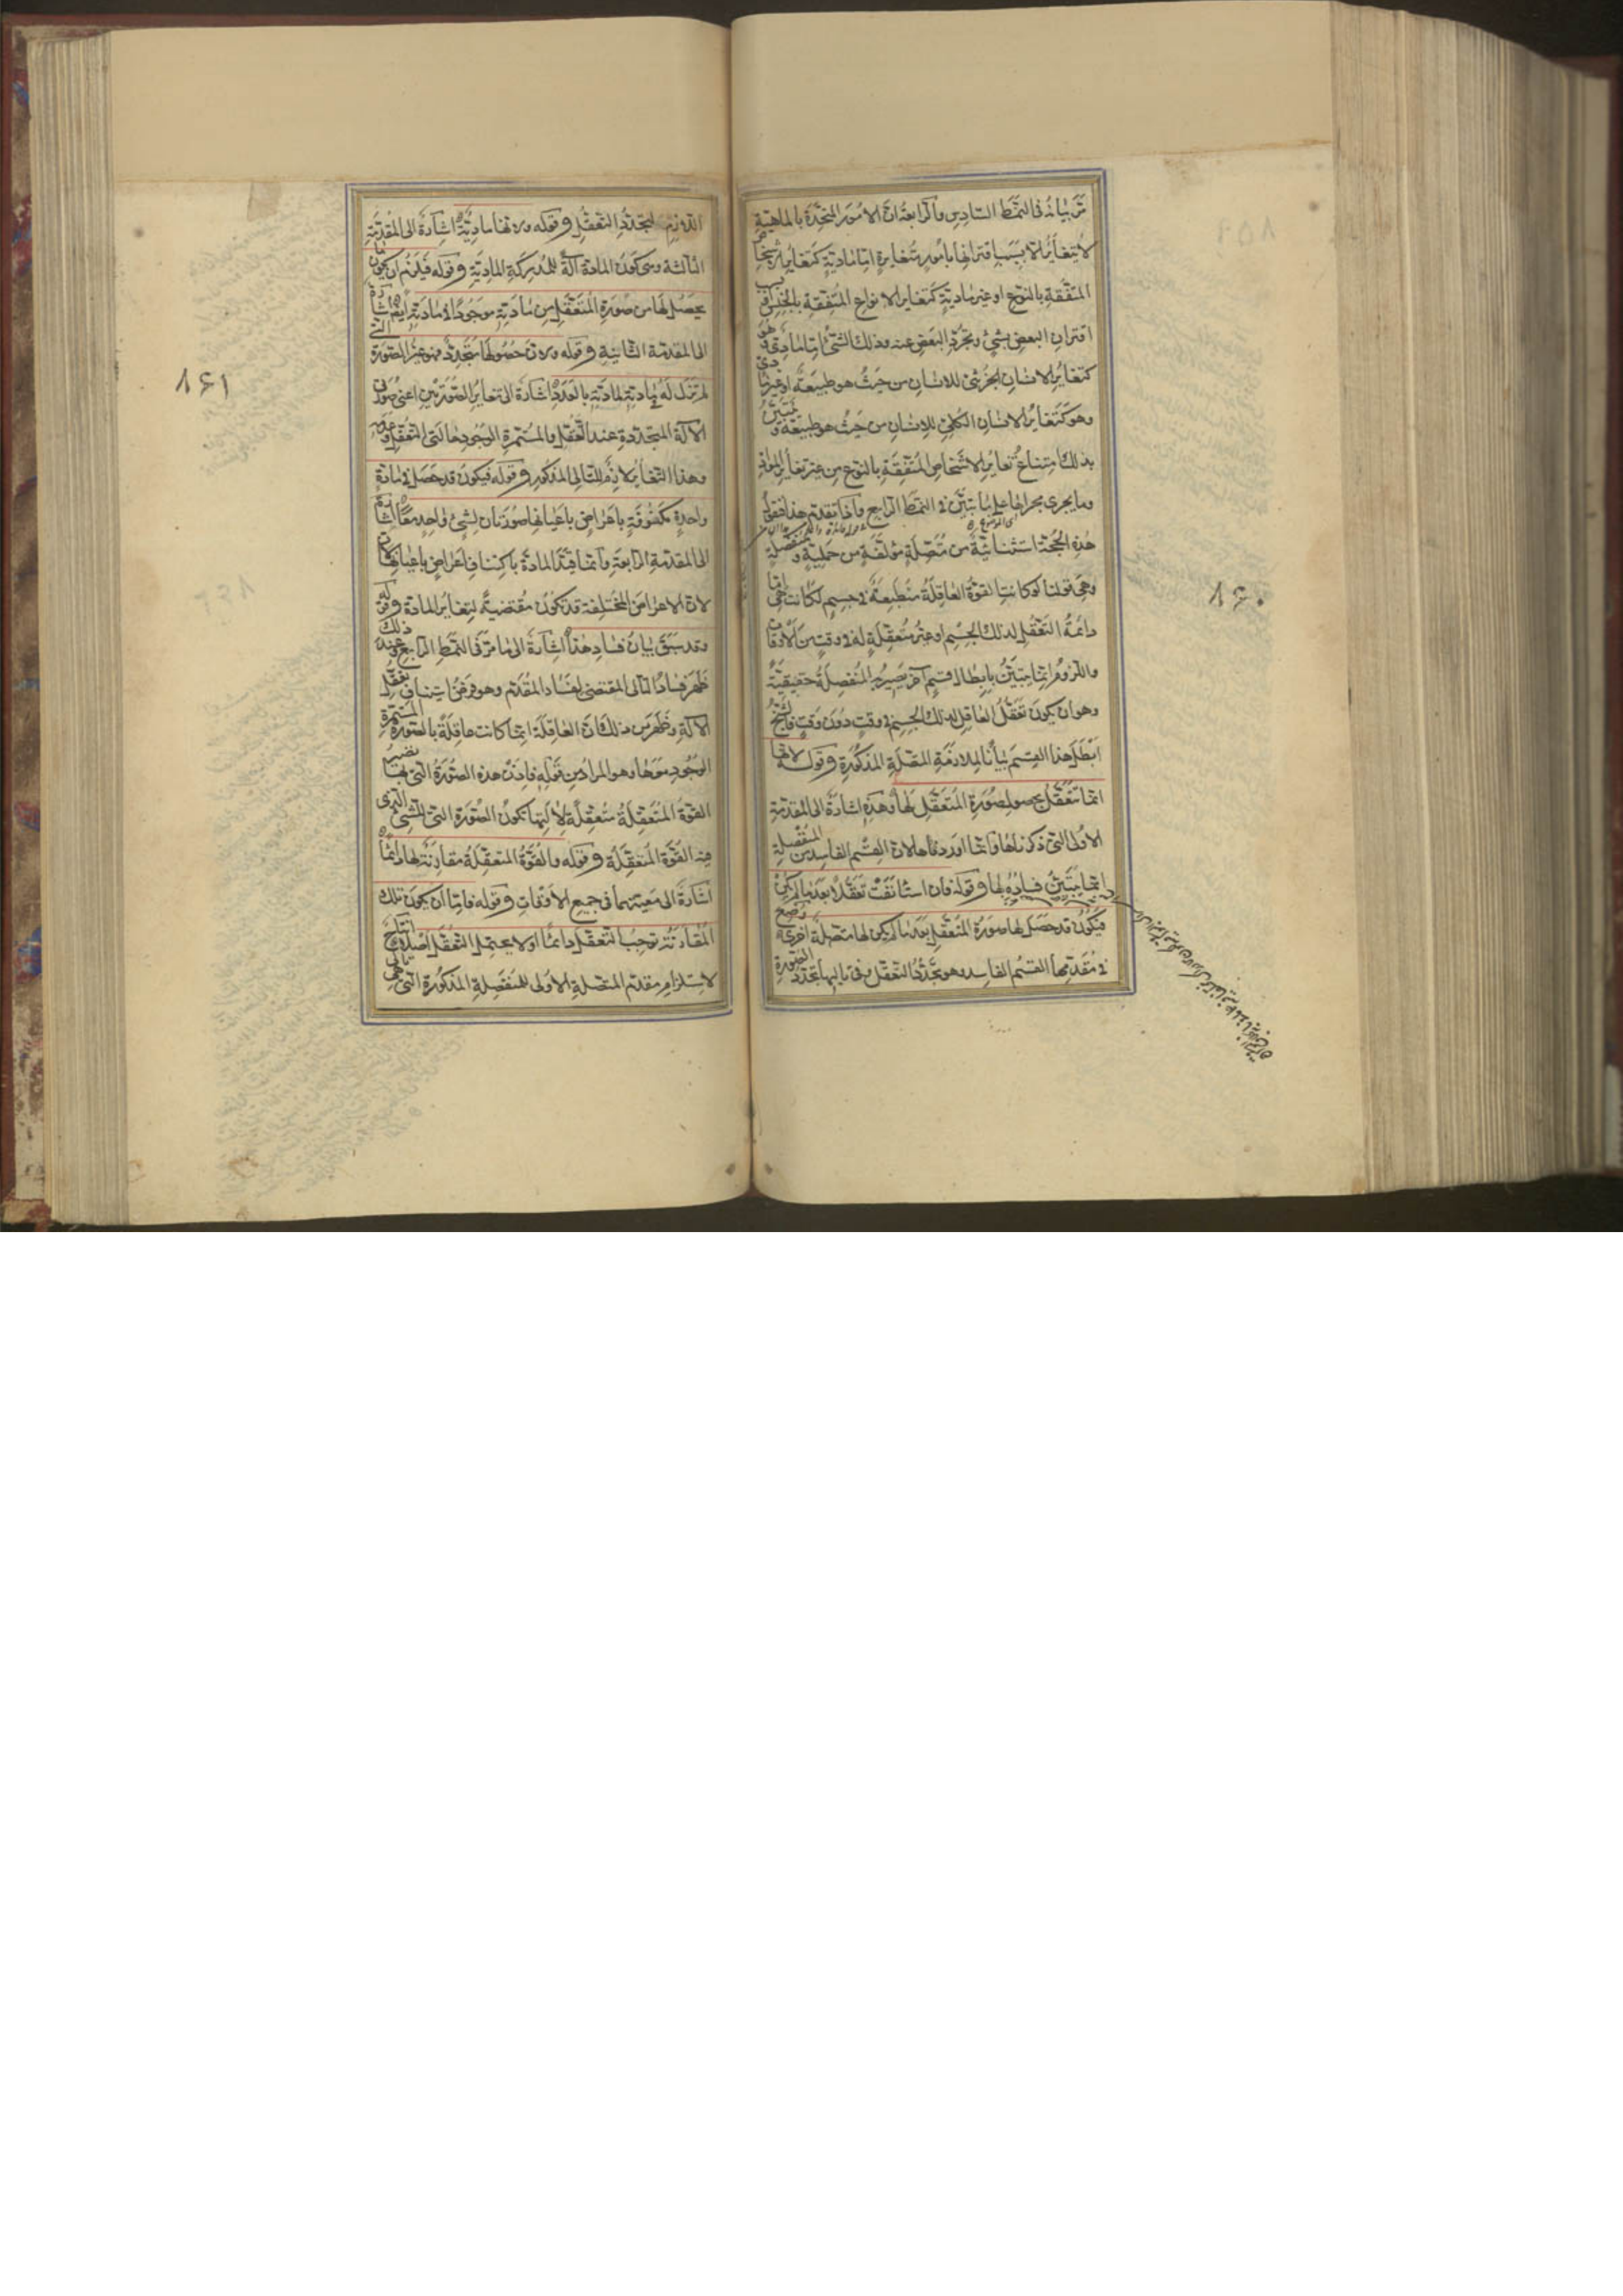 مر بيانه في النمط السادس والرابعة ان الامور المتحدة بالماهية
لا يتغاير الا بسبب اقترانها بامور متغايرة اما مادية كتغاير الاشخاص
المتفقة بالنوع او غير مادية كتغاير الانواع المتفقة بالجنس او بسبب
اقتران البعض بشئ وتجرد البعض عنه وذلك الشئ اما مادي وهو
كتغاير الانسان الجزئي للانسان من حيث هو طبيعة او غير مادي
وهو كتغاير الانسان الكلي للانسان من حيث هو طبيعة وتبين
بذلك امتناع تغاير الاشخاص المتفقة بالنوع من غير تغاير المواد
وما يجري مجراها على ما تبين في النمط الرابع واذا تقدم هذا فنقول
هذه الحجة استثنائية من متصلة مؤلفة من حملية ومنفصلة
وهي قولنا لو كانت القوة العاقلة منطبعة في جسم لكانت هي اما
دائمة التعقل لذلك الجسم او غير متعقلة له في وقت من الاوقات
واللزوم انما يتبين بابطال قسم آخر يصير به المنفصلة حقيقية
وهو ان يكون تعقل العاقل لذلك الجسم في وقت دون وقت فالشيخ
ابطل هذا القسم بيانا لملازمة المتصلة المذكورة وقوله لانها
انما تتعقل بحصول صورة المتعقل لها وهذه اشارة الى المقدمة
الاولى التي ذكرناها وانما اوردها لان القسم الفاسد من المنفصلة
انما يتبين فساده بها وقوله فان استأنفت تعقلا بعد ما لم يكن
فيكون قد حصل لها صورة المتعقل بعد ما لم يكن لها متصلة اخرى وضع
في مقدمها القسم الفاسد وهو تجدد التعقل وفي تاليها تجدد الصورة
۱۶۰
اللازم لتجدد التعقل وقوله ولانها مادية اشارة الى المقدمة
الثالثة وهي كون المادة آلة للمدركة المادية وقوله فيلزم ان يكون ما
يحصل لها من صورة المتعقل من مادته موجودا في مادته ايضا اشارة
الى المقدمة الثانية وقوله ولان حصولها متجدد فهو غير الصورة التي
لم تزل له في مادته لمادته بالعدد اشارة الى تغاير الصورتين اعني صورتي
الآلة المتجددة عند التعقل والمستمرة الوجود حالتي التعقل وعدمه
وهذا التغاير لازم للتالي المذكور وقوله فيكون قد حصل في مادة
واحدة مكنوفة باعراض باعيانها صورتان لشئ واحد معا اشارة
الى المقدمة الرابعة وانما قيد المادة باكتناف اعراض باعيانها
لان الاعراض المختلفة قد تكون مقتضية لتغاير المادة وقوله
وقد سبق بيان فساد هذا اشارة الى ما مر في النمط الرابع وعند ذلك
ظهر فساد التالي المقتضي لفساد المقدم وهو فرض استيناف تعقل
الآلة وظهر من ذلك ان العاقلة انما كانت عاقلة بالصورة المستمرة
الوجود معها وهو المراد من قوله فاذن هذه الصورة التي بها تصير
القوة المتعقلة متعقلة لآلتها تكون الصورة التي للشئ الذي
فيه القوة المتعقلة وقوله والقوة المتعقلة مقارنة لها دائما
اشارة الى معيتهما في جميع الاوقات وقوله فاما ان يكون تلك
المقارنة توجب التعقل دائما او لا يحتمل التعقل اصلا انتاج
لاستلزام مقدم المتصلة الاولى للمنفصلة المذكورة التي هي تالي
۱۶۱